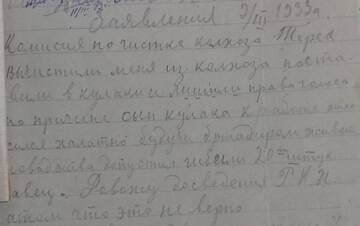 Заявления 9/III 1933 г.
Комисия по чистке колхоза Терек
вычистили меня из колхоза поста
вили в кулаки и лишили права голоса
по причине сын кулака к работе отно
сился халатно будучи бригадиром живот
новодства допустил гибели 20 штук
авец. Довожу до сведения РКИ
о том что это не верно